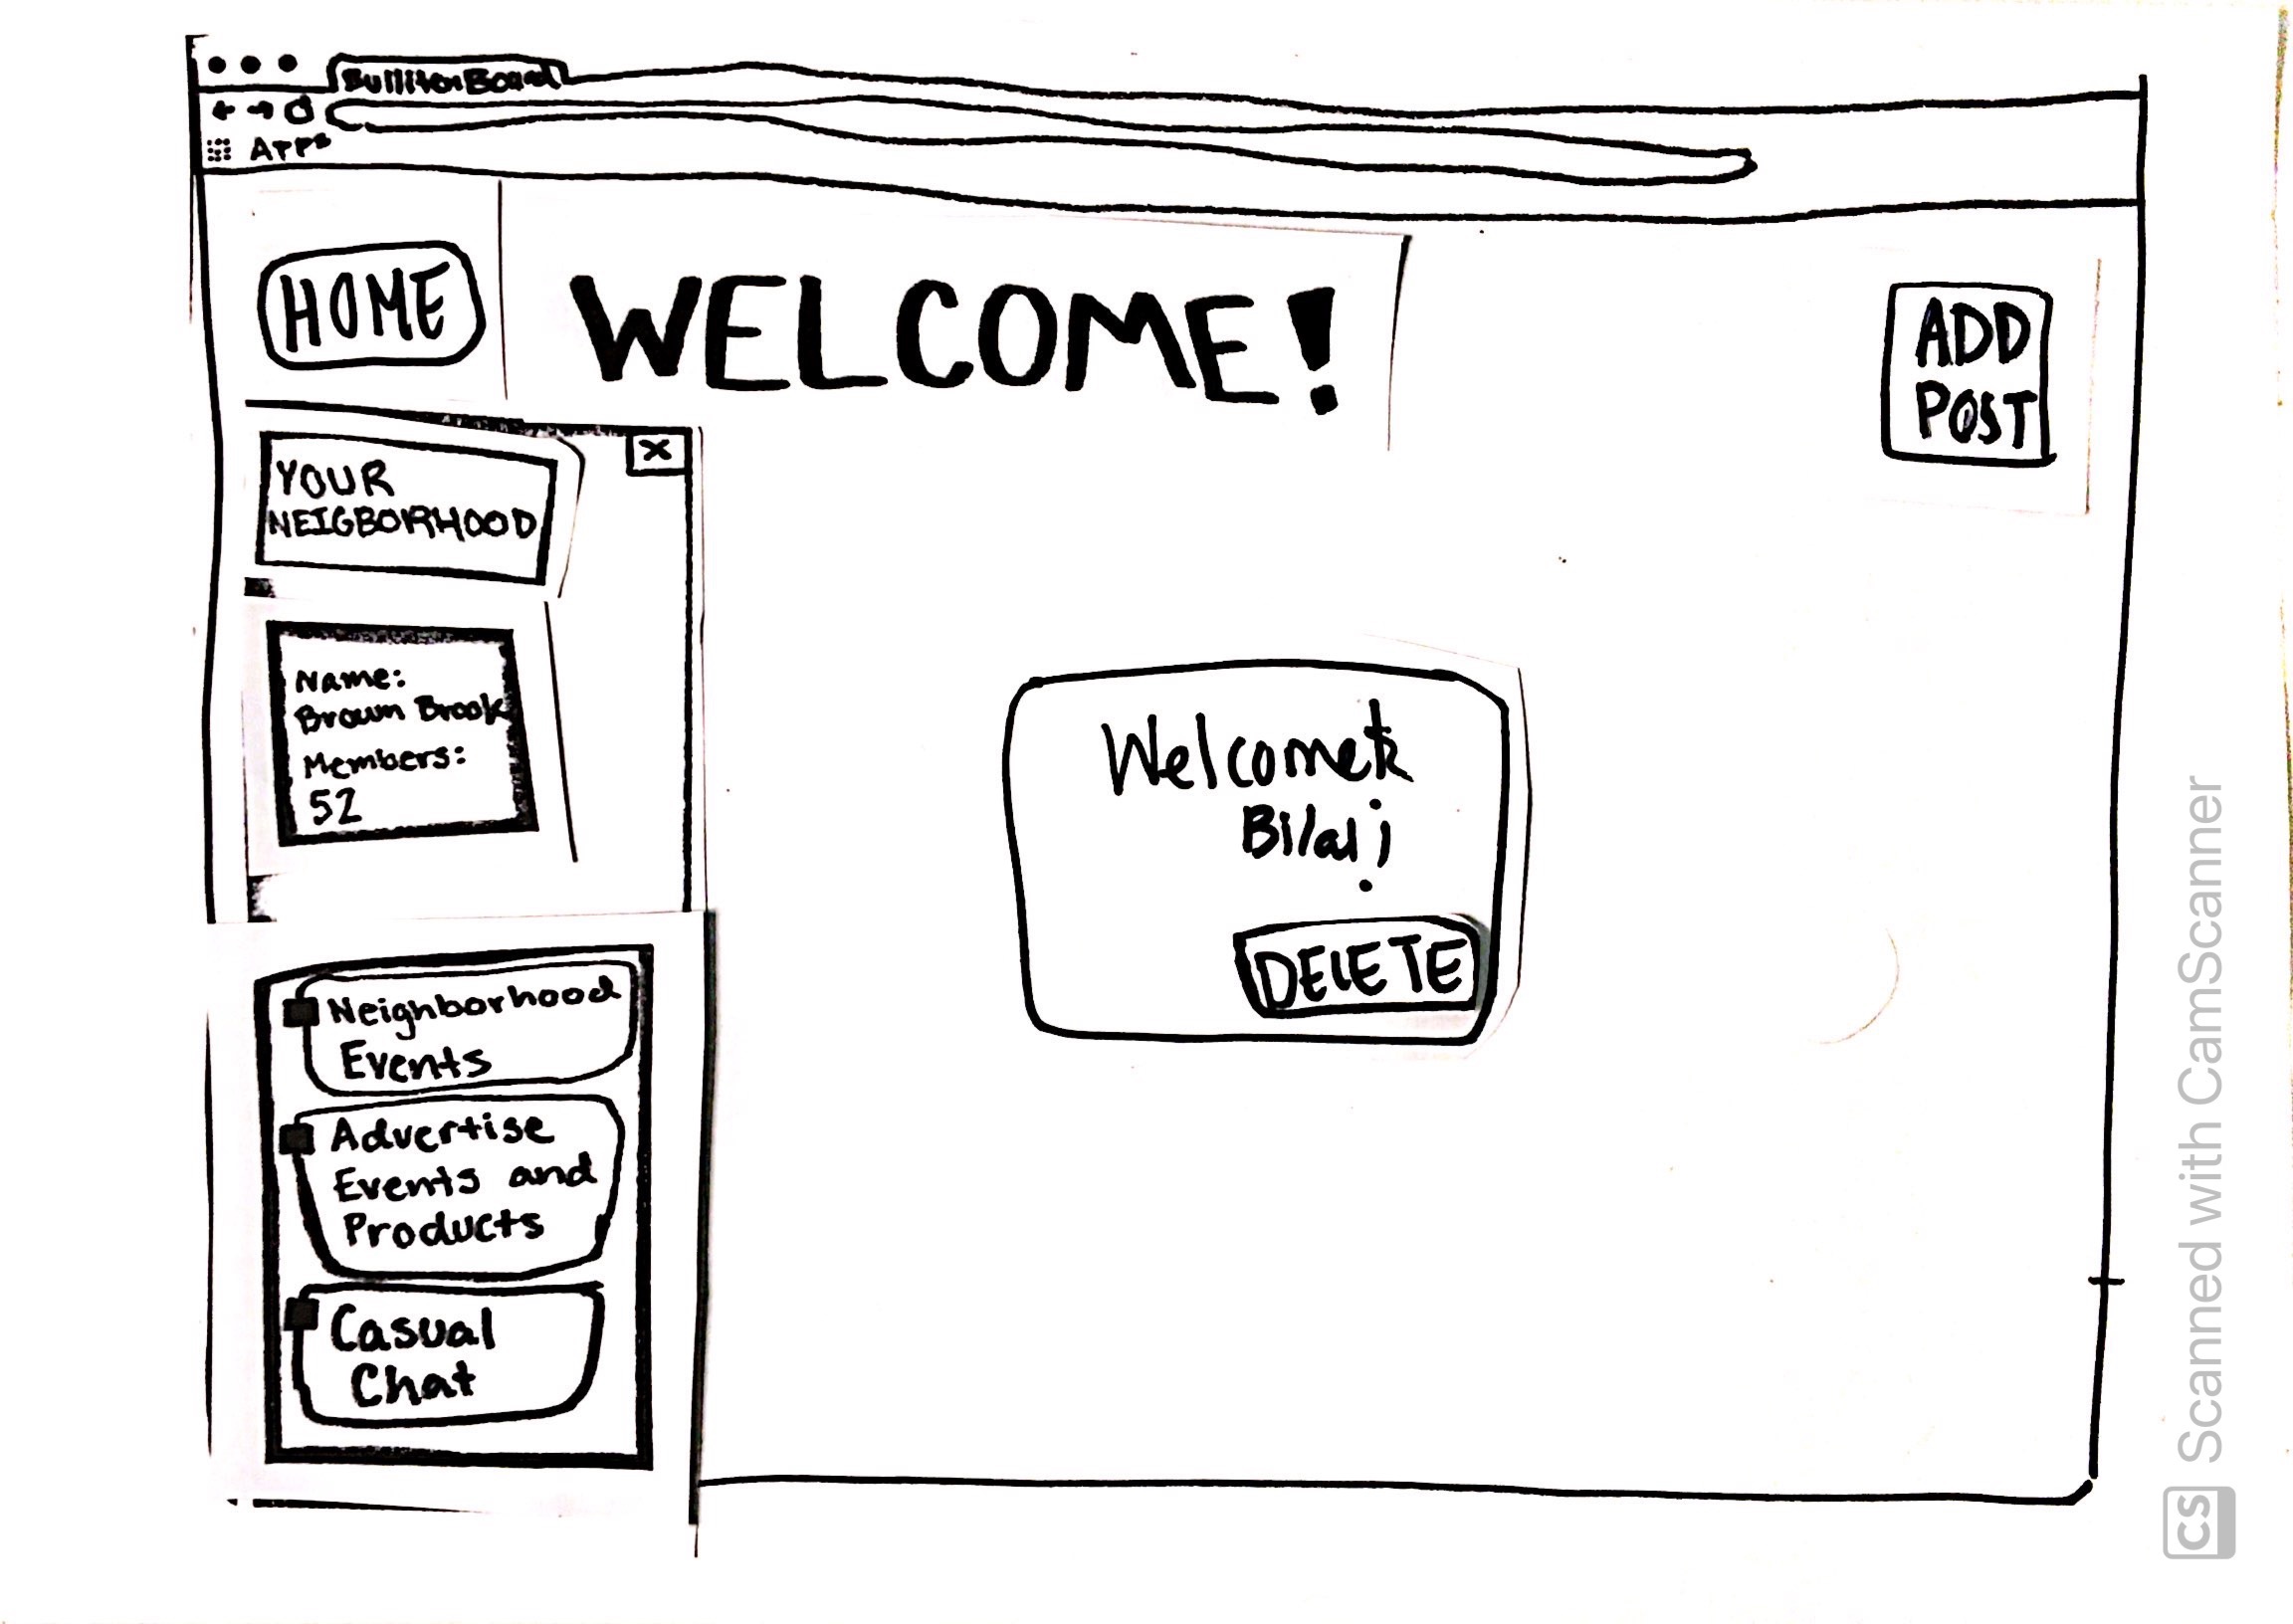 BullitenBoard
APPs
HOME
WELCOME!
ADD
POST
X
YOUR
NEIGBORHOOD
Name:
Brown Brook
Members:
52
Bilal
DELETE
Neighborhood
Events
Advertise
Events and
Products
Casual
Chat
CS Scanned with CamScanner